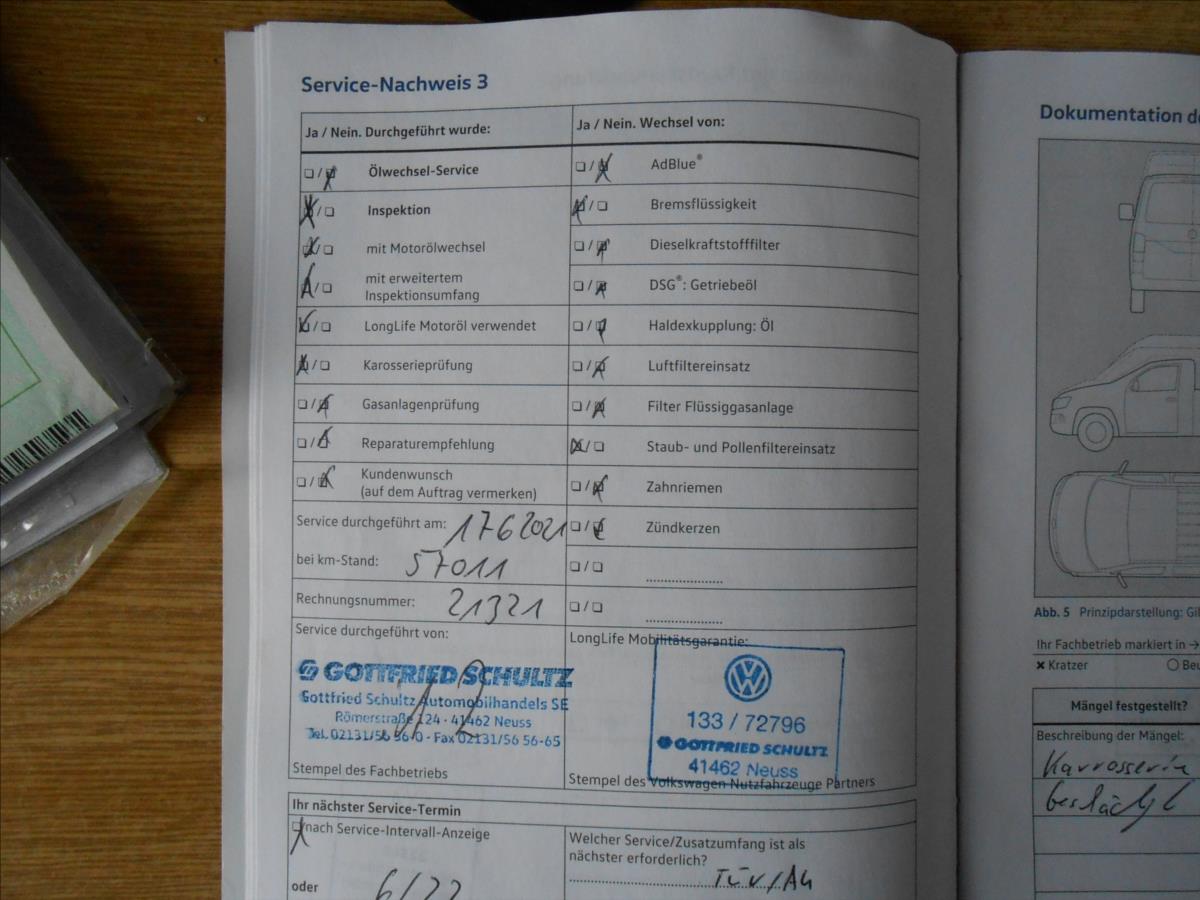 Service-Nachweis 3
Ja / Nein. Durchgeführt wurde:
Ölwechsel-Service
Inspektion
mit Motorölwechsel
mit erweitertem
Inspektionsumfang
LongLife Motoröl verwendet
Karosserieprüfung
Gasanlagenprüfung
Reparaturempfehlung
Kundenwunsch
(auf dem Auftrag vermerken)
Service durchgeführt am: 17 6 2021
bei km-Stand: 57011
Rechnungsnummer: 21321
Service durchgeführt von:
GOTTFRIED SCHULTZ
Gottfried Schultz Automobilhandels SE
Römerstraße 124 · 41462 Neuss
Tel. 02131/56 56-0 · Fax 02131/56 56-65
Stempel des Fachbetriebs
Ja / Nein. Wechsel von:
AdBlue®
Bremsflüssigkeit
Dieselkraftstofffilter
DSG®: Getriebeöl
Haldexkupplung: Öl
Luftfiltereinsatz
Filter Flüssiggasanlage
Staub- und Pollenfiltereinsatz
Zahnriemen
Zündkerzen
LongLife Mobilitätsgarantie:
133 / 72796
GOTTFRIED SCHULTZ
41462 Neuss
Stempel des Volkswagen Nutzfahrzeuge Partners
Ihr nächster Service-Termin
nach Service-Intervall-Anzeige
oder 6/22
Welcher Service/Zusatzumfang ist als
nächster erforderlich?
TÜV/AU
Dokumentation de
Abb. 5 Prinzipdarstellung: Gil
Ihr Fachbetrieb markiert in →
× Kratzer ○ Beu
Mängel festgestellt?
Beschreibung der Mängel: